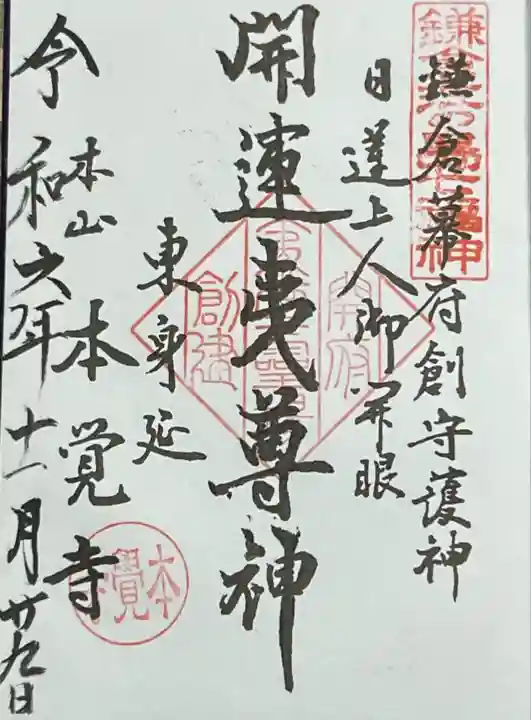 鎌倉幕府創守護神
日蓮上人御開眼
開運夷尊神
東身延
本山 本覚寺
令和六年十一月廿九日
創建
開府
本覺